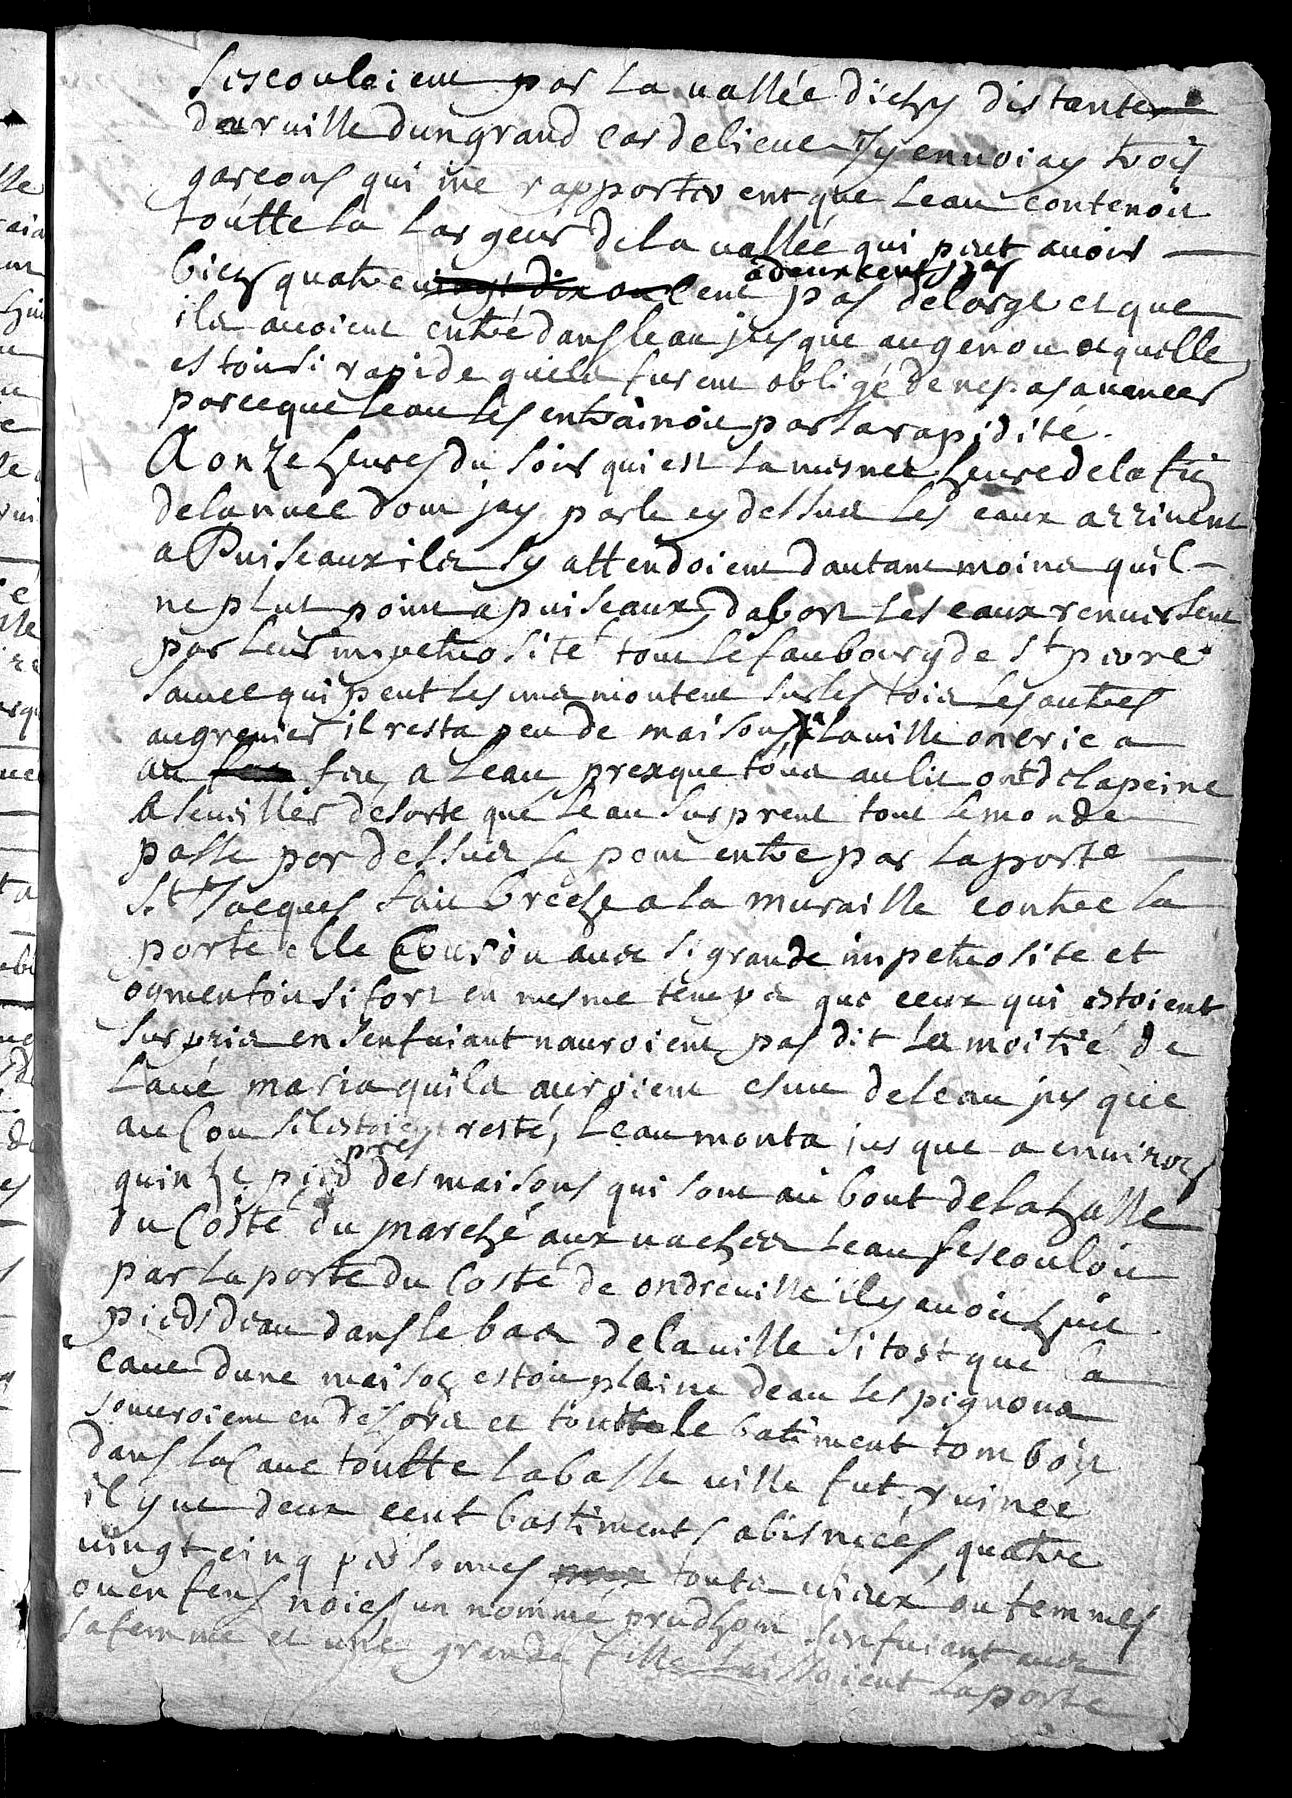 sescouloient par la vallée dichy distante
darville dun grand cardeliene Jy envoiay trois
garcons qui me rapporterent que leau contenoit
toutte la largeur dela vallée qui peut avoir
bien quatre vingt dix ou cent a deux cent pas pas delarge et que
ils avoient entré dans leau jusque augenou et quelle
estoit si rapide quils furent obligé de nepas avancer
parceque leau les entrainoit par la rapidité.
A onze heures du soir qui est la mesmes heure dela fin
dela nuee dont jay parlé cy dessus les eaux arrivent
a Puiseaux ils sy attendoient dautant moins quil
ne plut point a puiseaux, dabort les eaux renversent
par leur impetuosité tout lefaubourg de St pierre
sauve qui peut les uns montent sur les tois les autres
augrenier il resta peu de maisons a la ville on crie a
au feu, a leau presque tous au lit ont delapeine
a seveiller desorte que leau surprent tout lemonde
passe par dessus le pont entre par laporte
St Jacques fait breche a la muraille contre la
porte elle couroit avec si grande impetuosite et
ogmentoit si fort en mesme temps que ceux qui estoient
surpris en senfuiant nauroient pas dit la moitié de
lavé maria quils auroient esvu deleau jusque
au cou silestoient resté, leau monta jusque a environ
quinze pied pres des maisons qui sont au bout delahalle
du costé du marché aux vaches leau sescouloit
par la porte du costé de ondreville il y avoit huit
pieds deau dans le bas dela ville sitost que la
cave dune maison estoit plaine deau les pignons
souvroient en dehors et toutte le batiment tomboit
dans la cave toutte labasse ville fut ruinee
il y ut deux cent bastiments abismées quatre
vingt cinq personnes touts vieux ou femmes
ou enfens noies un nommé prudhom senfuiant avec
sa femme et une grande fille laissoient laporte